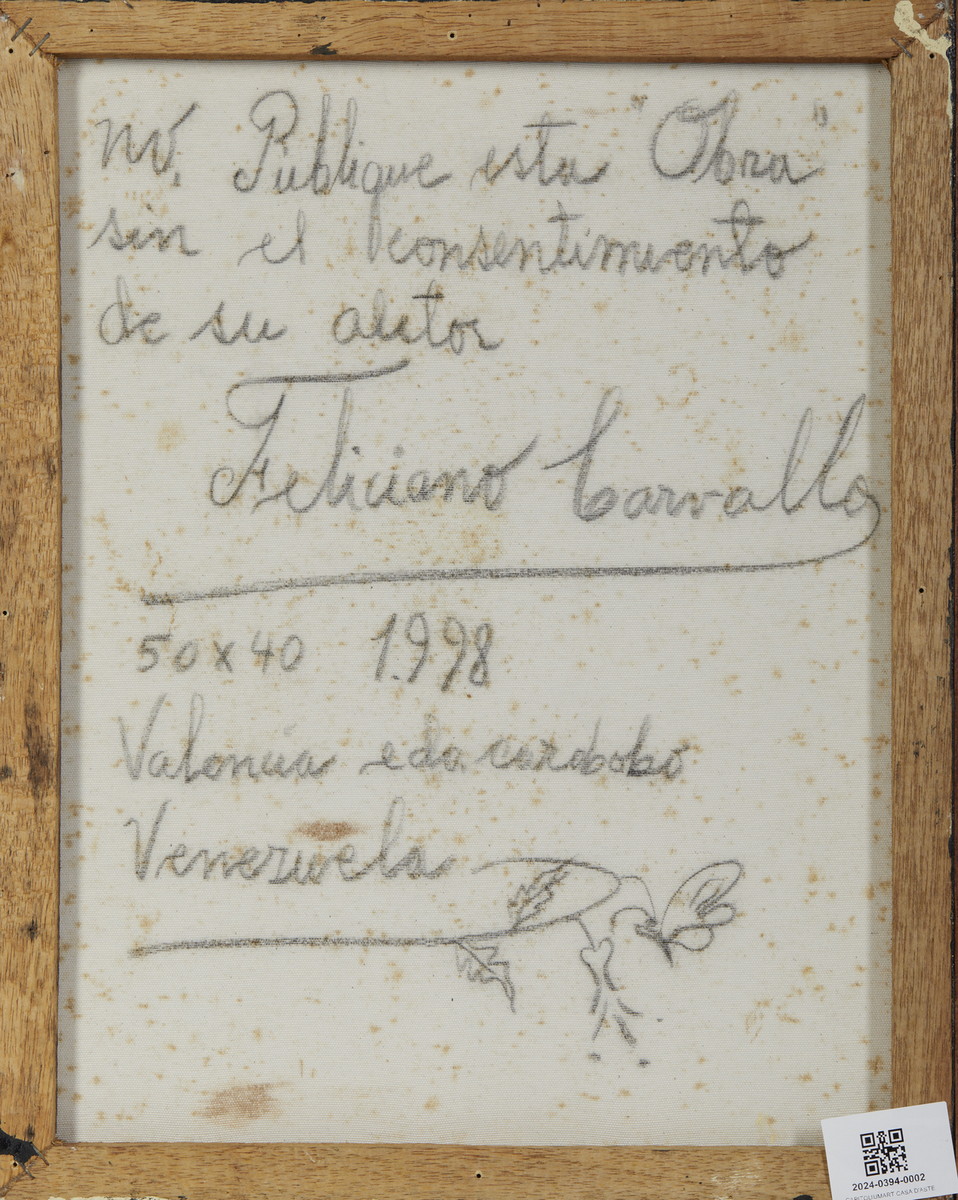 no. Publique esta "Obra"
sin el consentimiento
de su autor
Feliciano Carvallo
50x40 1.998
Valencia edo. carabobo
Venezuela
2024-0394-0002